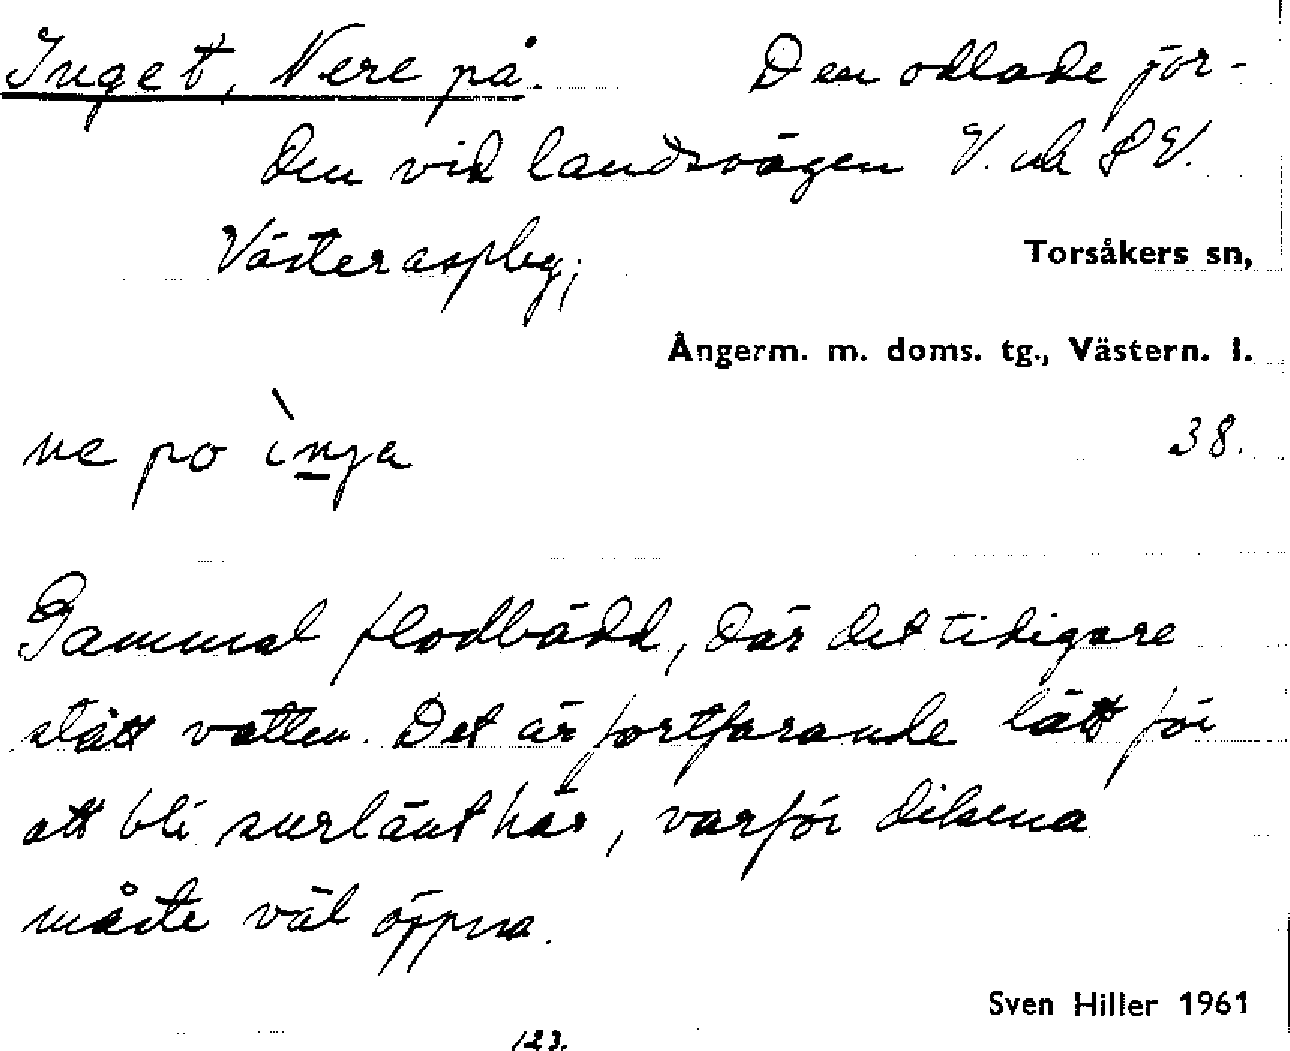 Inget, Nere på. Den odlade jor-
den vid landsvägen V. och SV.
Västeraspby;
Torsåkers sn,
Ångerm. m. doms. tg., Västern. l.
ne po ìnja
38.
Gammal flodbädd, där det tidigare
stått vatten. Det är fortfarande lätt för
att bli surlänt här, varför dikena
måste väl öppna.
Sven Hiller 1961
123.